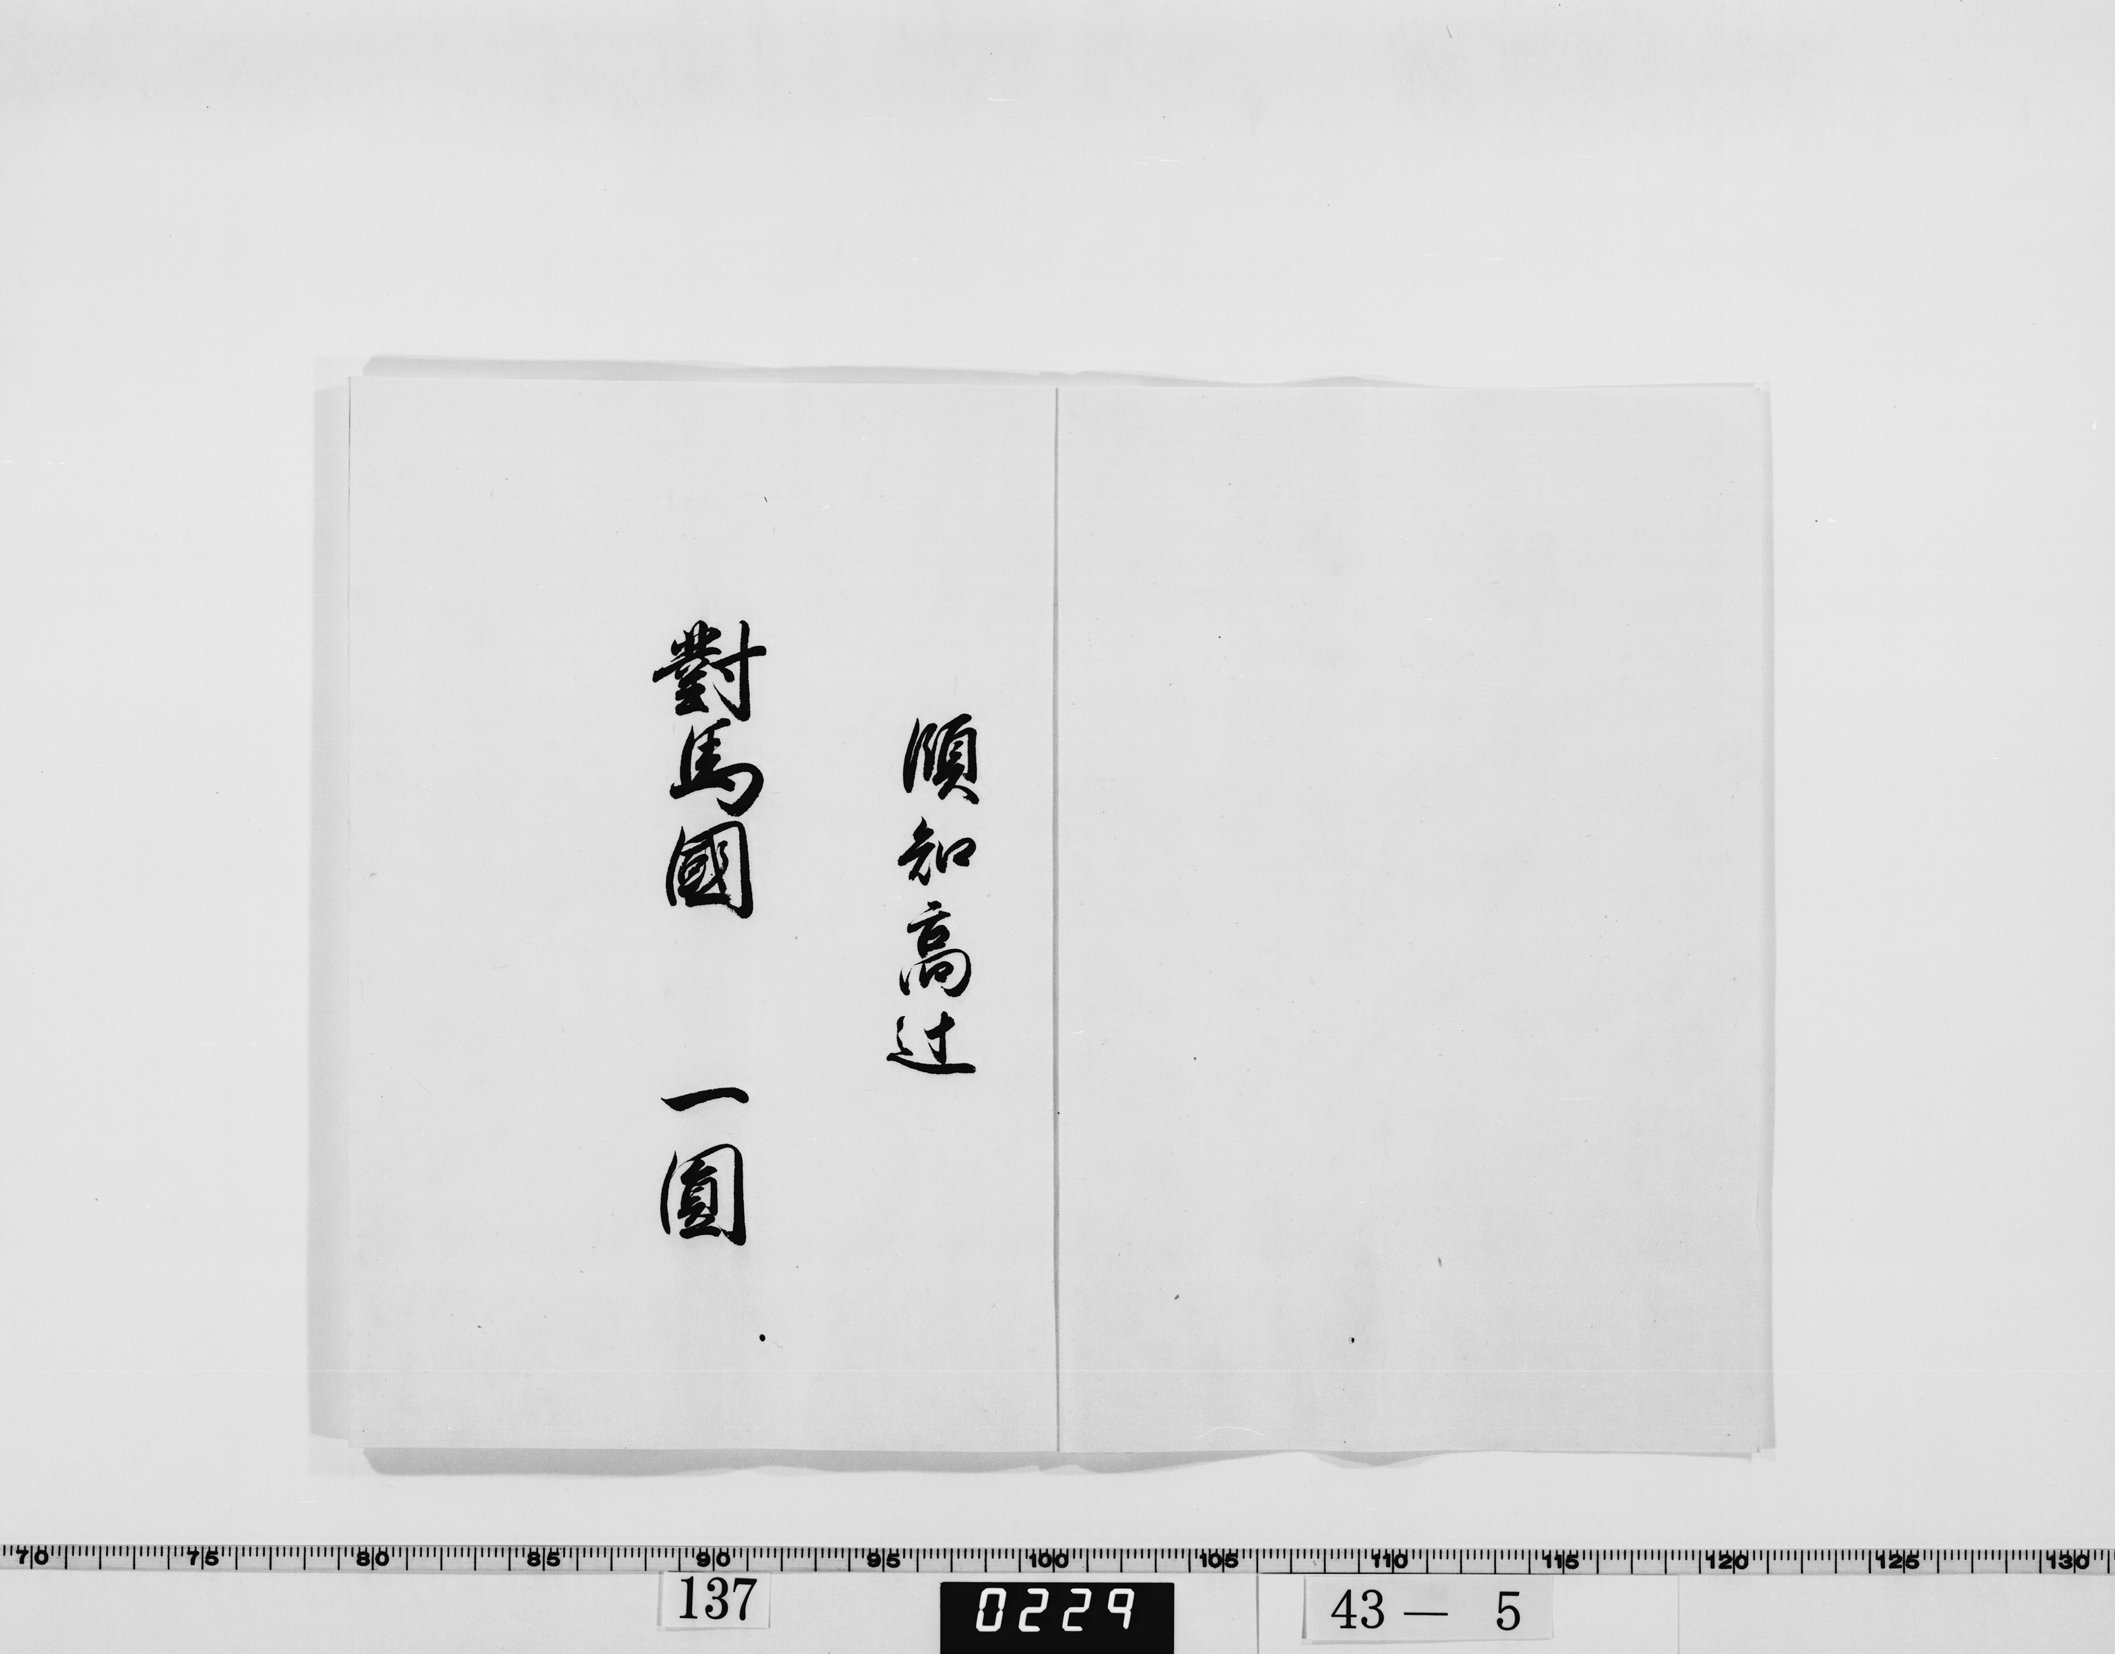 須知高辻
對馬國 一圓
70 75 80 85 90 95 100 105 110 115 120 125 130
137
0229
43— 5